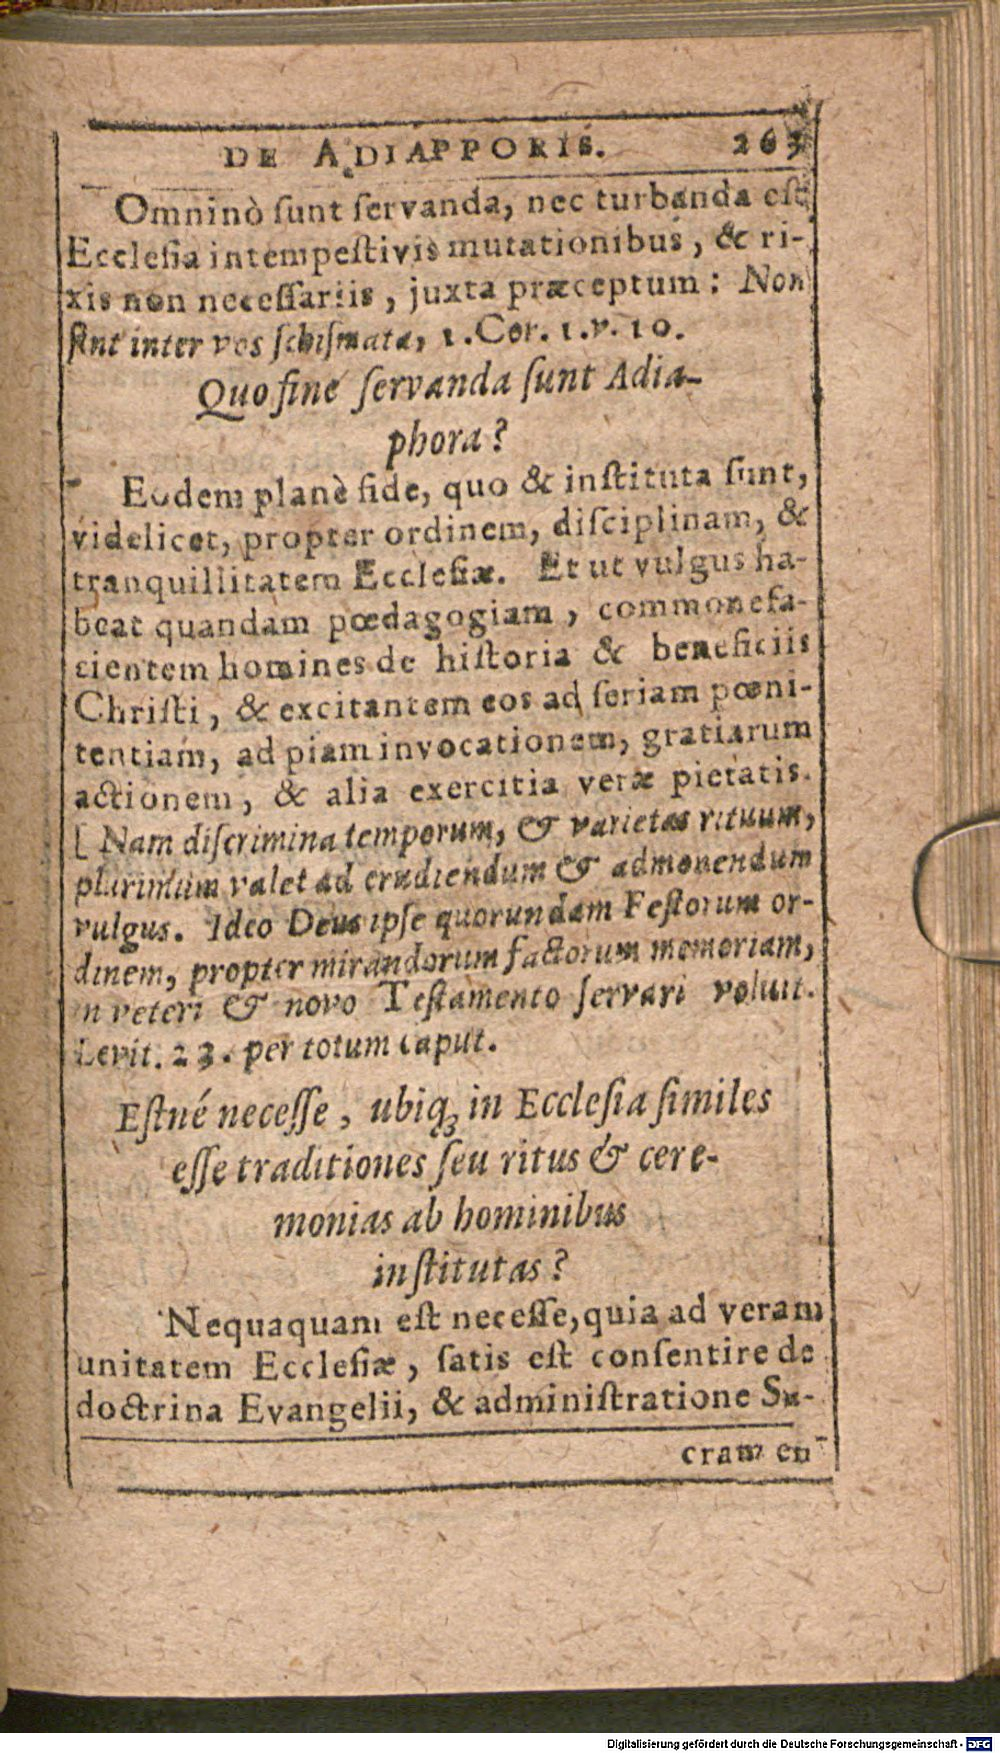 DE ADIAPPORIS. 263
Omninò ſunt ſervanda, nec turbanda eſt
Eccleſia intempeſtivis mutationibus, & ri-
xis non neceſſariis, juxta præceptum: Non
ſint inter vos ſchiſmata, 1. Cor. 1. v. 10.
Quo fine ſervanda ſunt Adia-
phora?
Eodem planè fide, quo & inſtituta ſunt,
videlicet, propter ordinem, diſciplinam, &
tranquillitatem Eccleſiæ. Et ut vulgus ha-
beat quandam pœdagogiam, commonefa-
cientem homines de hiſtoria & beneficiis
Chriſti, & excitantem eos ad ſeriam pœni-
tentiam, ad piam invocationem, gratiarum
actionem, & alia exercitia veræ pietatis.
[ Nam diſcrimina temporum, & varietas rituum,
plurimum valet ad erudiendum & admonendum
vulgus. Ideo Deus ipſe quorundam Feſtorum or-
dinem, propter mirandorum factorum memoriam,
in veteri & novo Teſtamento ſervari voluit.
Levit. 23. per totum caput.
Eſtné neceſſe, ubiqꝫ in Eccleſia ſimiles
eſſe traditiones ſeu ritus & cere-
monias ab hominibus
inſtitutas?
Nequaquam eſt neceſſe, quia ad veram
unitatem Eccleſiæ, ſatis eſt conſentire de
doctrina Evangelii, & adminiſtratione Sa-
cramen-
Digitalisierung gefördert durch die Deutsche Forschungsgemeinschaft - DFG